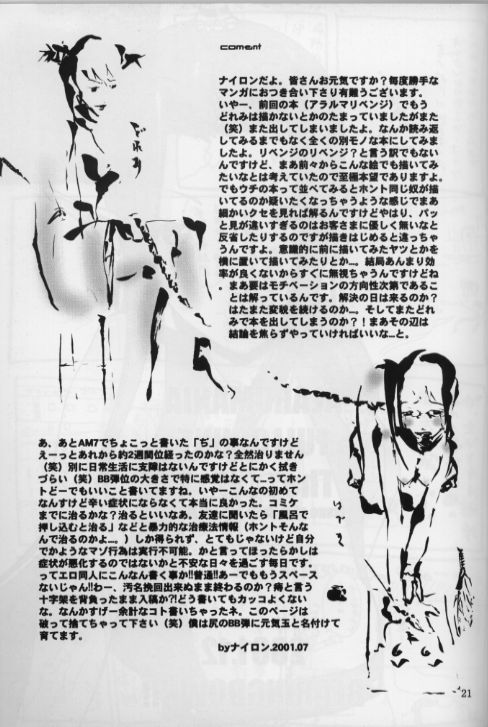 coment
ナイロンだよ。皆さんお元気ですか?毎度勝手な
マンガにおつき合い下さり有難うございます。
いやー、前回の本（アラルマリベンジ）でもう
どれみは描かないとかのたまっていましたがまた
（笑）また出してしまいましたよ。なんか読み返
してみるまでもなく全くの別モノな本にしてみま
したよ。リベンジのリベンジ?と言う訳でもない
んですけど、まあ前々からこんな絵でも描いてみ
たいなとは考えていたので至極本望でありますよ。
でもウチの本って並べてみるとホント同じ奴が描
いてるのか疑いたくなっちゃうような感じでまあ
細かいクセを見れば解るんですけどやはり、パッ
と見が違いすぎるのはお客さまに優しく無いなと
反省したりするのですが描きはじめると違っちゃ
うんですよ。意識的に前に描いてみたヤツとかを
横に置いて描いてみたりとか…。結局あんまり効
率が良くないからすぐに無視ちゃうんですけどね
。まあ要はモチベーションの方向性次第であるこ
とは解っているんです。解決の日は来るのか?
はたまた変貌を続けるのか…、そしてまたどれ
みで本を出してしまうのか?！まあその辺は
結論を焦らずやっていければいいな…と。
どれみ
あ、あとAM7でちょこっと書いた「ぢ」の事なんですけど
えーっとあれから約2週間位経ったのかな?全然治りません
（笑）別に日常生活に支障はないんですけどとにかく拭き
づらい（笑）BB弾位の大きさで特に感覚はなくて…ってホン
トどーでもいいこと書いてますね。いやーこんなの初めて
なんすけど辛い症状にならなくて本当に良かった。コミケ
までに治るかな?治るといいなあ。友達に聞いたら「風呂で
押し込むと治る」などと暴力的な治療法情報（ホントそんな
んで治るのかよ…。）しか得られず、とてもじゃないけど自分
でかようなマゾ行為は実行不可能。かと言ってほったらかしは
症状が悪化するのではないかと不安な日々を過ごす毎日です。
ってエロ同人にこんなん書く事か!!普通!!あーでももうスペース
ないじゃん!!わー、汚名挽回出来ぬまま終わるのか?痔と言う
十字架を背負ったまま入稿か?!どう書いてもカッコよくない
な。なんかすげー余計なコト書いちゃったネ。このページは
破って捨てちゃって下さい（笑）僕は尻のBB弾に元気玉と名付けて
育てます。
byナイロン.2001.07
はづき
21